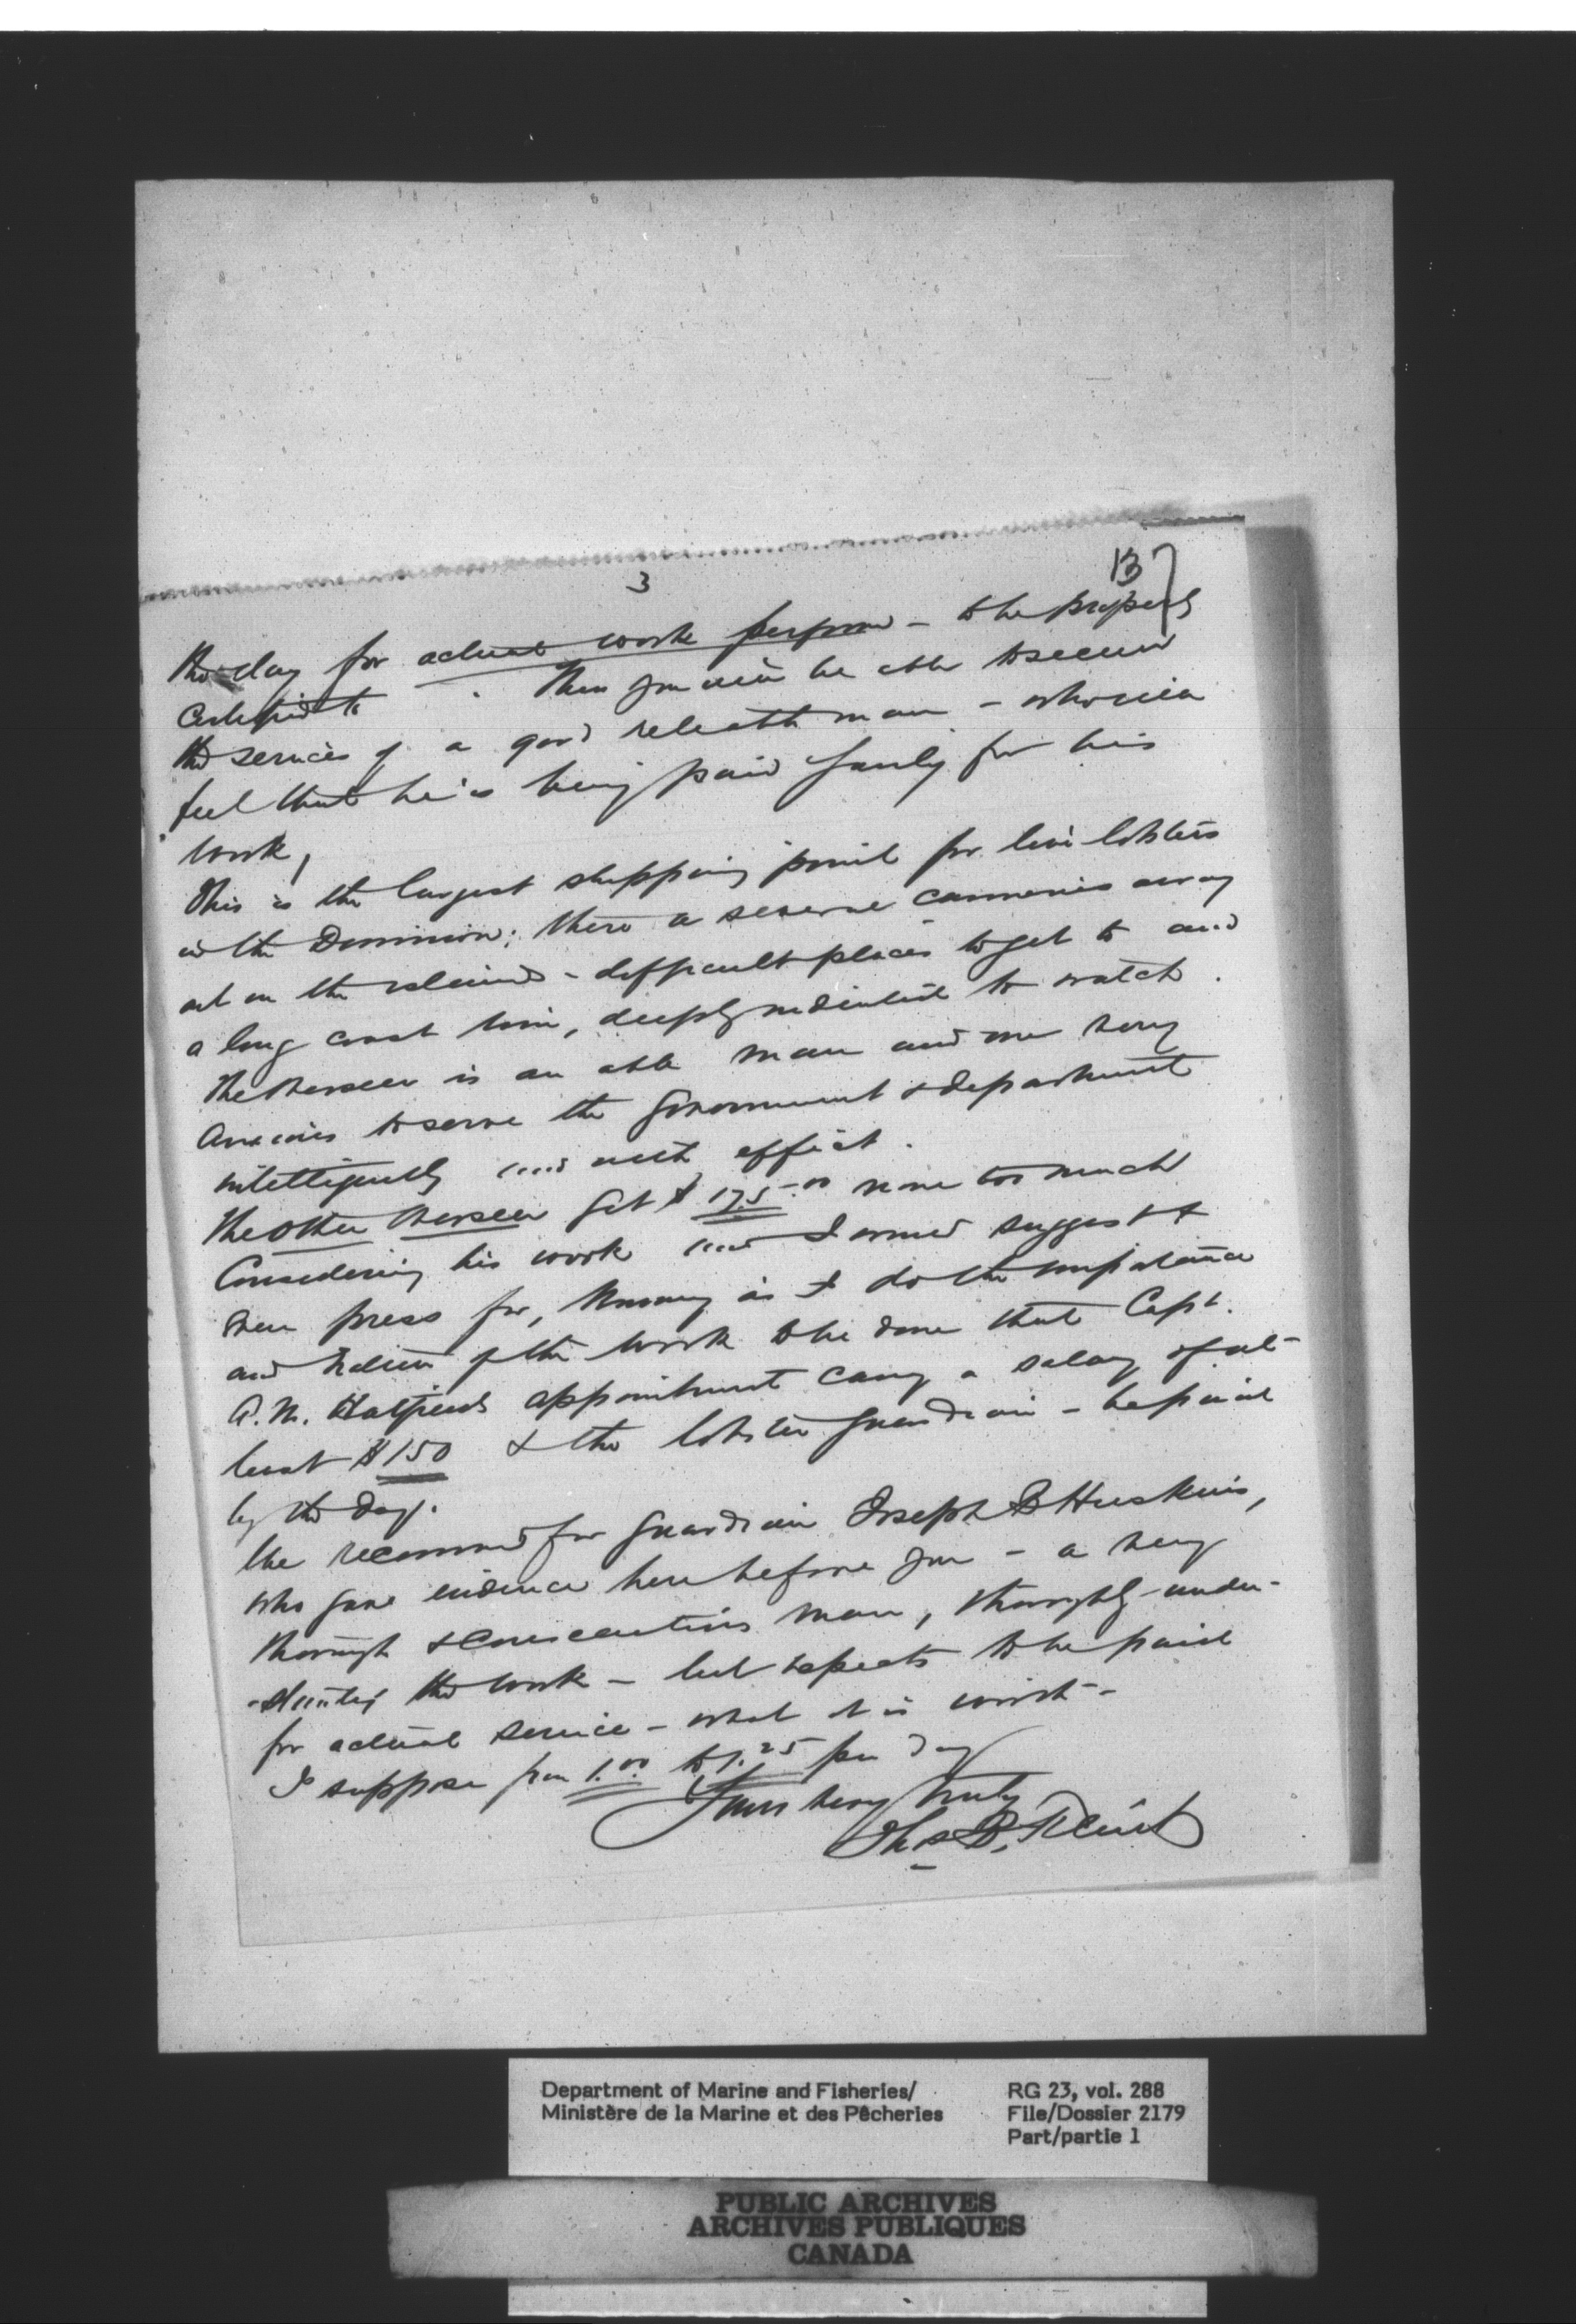 3
137
the day for actual work perform - to be properly
certified to. Then you will be able to secure
the services of a good reliable man - who will
feel that he is being paid fairly for his
work,
This is the largest shipping point for live lobsters
in the Dominion; there a several canneries away
out on the islands - difficult places to get to and
a long coast line, deeply indented to watch.
The Overseer is an able man and one very
anxious to serve the Government & department
intelligently and with effect.
The other Overseer get $175.00 none too much
Considering his work and I would suggest &
even press for, knowing as I do the importance
and nature of the work to be done that Capt.
A.N. appointment carry a salary of at-
least $150 & the lobster guardian - be paid
by the day.
He recommend for guardian Joseph B Huskins,
who gave evidence here before you - a very
thorough & conscientious man, thoroughly under-
-standing the work - but expects to be paid
for actual service - what it is worth -
I suppose from 1.00 to 1.25 per day
Yours very truly
Department of Marine and Fisheries/
Ministère de la Marine et des Pêcheries
RG 23, vol. 288
File/Dossier 2179
Part/partie 1
PUBLIC ARCHIVES
ARCHIVES PUBLIQUES
CANADA